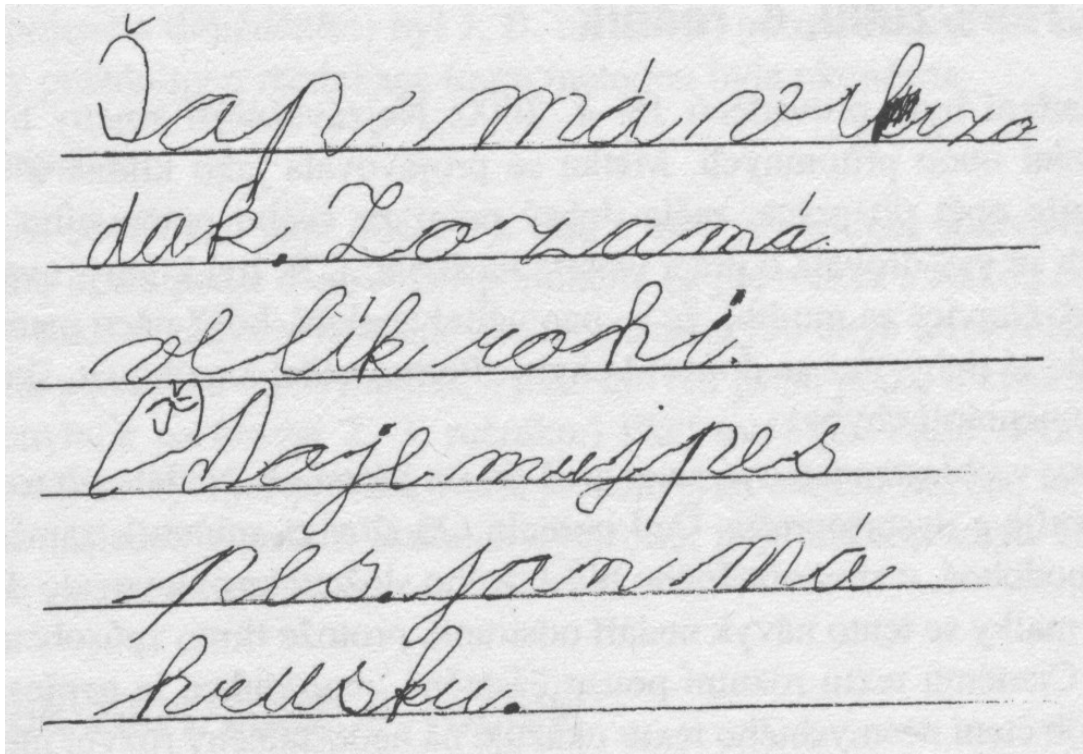 má zo
dak. Lo zamá
velik rohi.
Doje muj pes
pes. jan ma
housku.